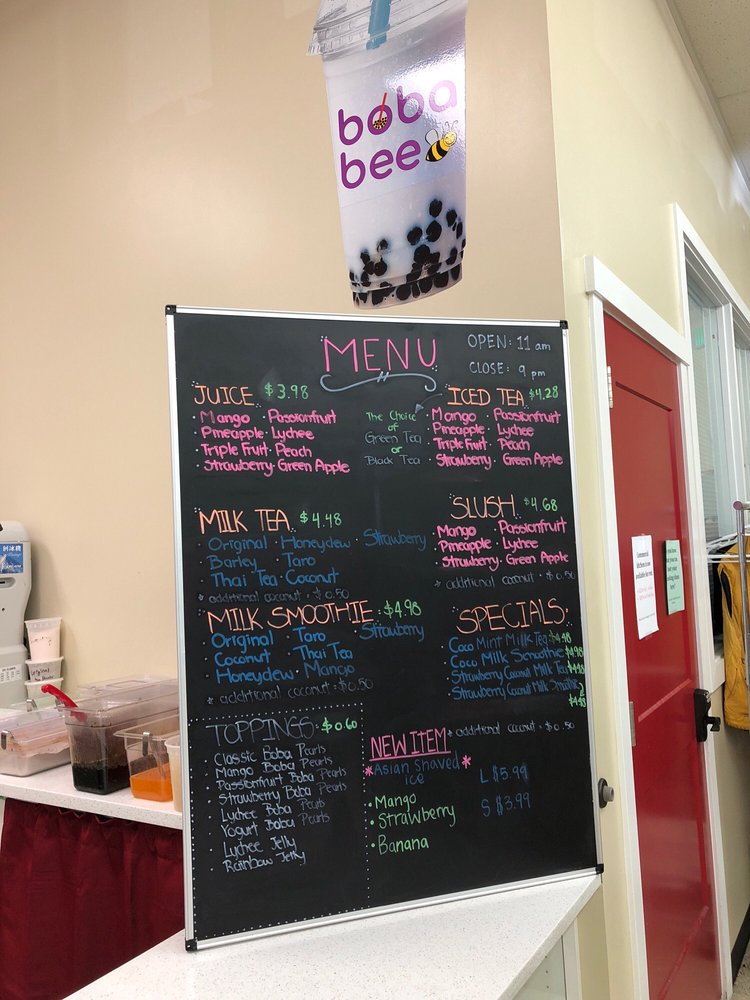 boba
bee
MENU
OPEN: 11 am
CLOSE: 9 pm
JUICE $3.98
· Mango · Passionfruit
· Pineapple · Lychee
· Triple Fruit · Peach
· Strawberry · Green Apple
The Choice
of
Green Tea
or
Black Tea
ICED TEA $4.28
· Mango · Passionfruit
· Pineapple · Lychee
· Triple Fruit · Peach
· Strawberry · Green Apple
MILK TEA $4.48
· Original · Honeydew · Strawberry
· Barley · Taro
· Thai Tea · Coconut
* additional coconut · $0.50
SLUSH $4.68
· Mango · Passionfruit
· Pineapple · Lychee
· Strawberry · Green Apple
* additional coconut · $0.50
MILK SMOOTHIE $4.98
· Original · Taro · Strawberry
· Coconut · Thai Tea
· Honeydew · Mango
* additional coconut · $0.50
SPECIALS:
· Coco Mint Milk Tea $4.48
· Coco Milk Smoothie $4.98
· Strawberry Coconut Milk Tea $4.48
· Strawberry Coconut Milk Smoothie
$4.98
* additional coconut · $0.50
TOPPINGS: $0.60
Classic Boba Pearls
Mango Boba Pearls
Passionfruit Boba Pearls
Strawberry Boba Pearls
Lychee Boba Pearls
Yogurt Boba Pearls
Lychee Jelly
Rainbow Jelly
NEW ITEM
* Asian Shaved *
ice
L $5.99
S $3.99
· Mango
· Strawberry
· Banana